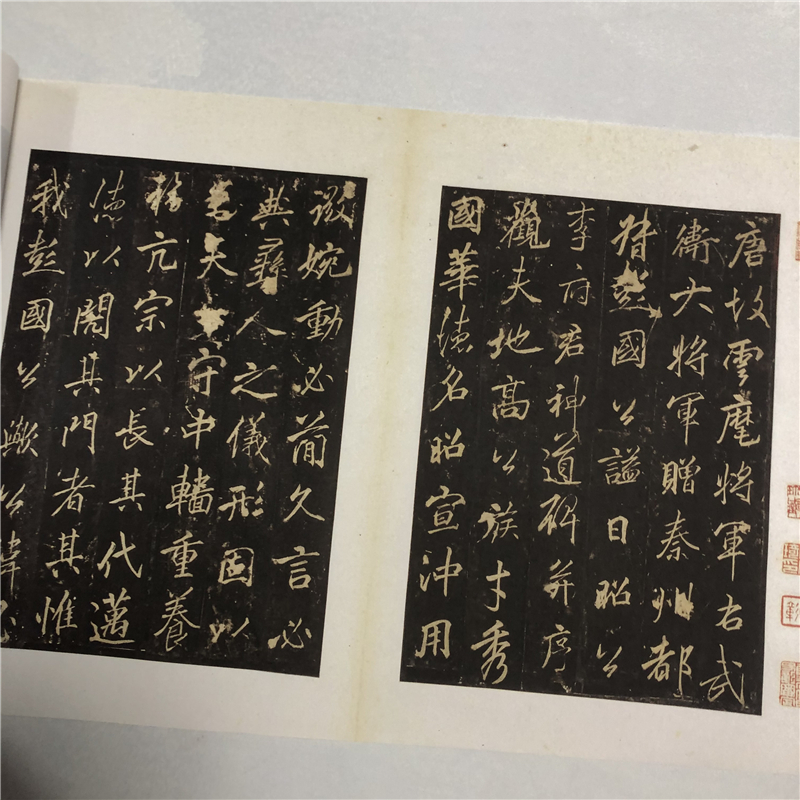 唐故雲麾將軍右武
衛大將軍贈秦州都
督彭國公謚曰昭公
李府君神道碑并序
觀夫地高公族才秀
國華德名昭宣沖用
微婉動必簡久言必
典彝人之儀形固以
夫守中重養
亢宗以長其代邁
德以閎其門者其惟
我彭國公歟公諱